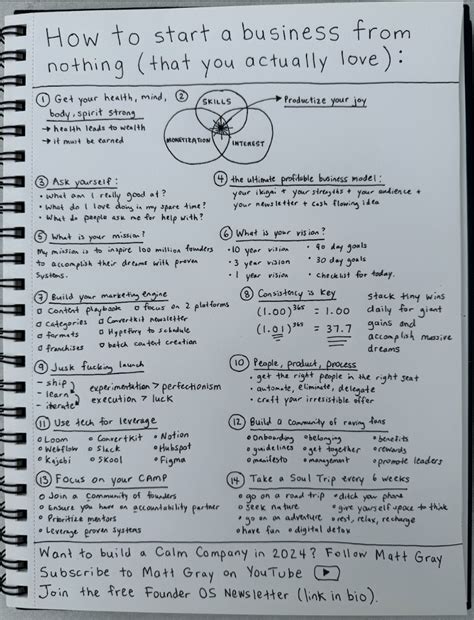 How to start a business from
nothing (that you actually love):
1 Get your health, mind,
body, spirit strong
→ health leads to wealth
→ it must be earned
2
SKILLS
MONETIZATION
INTEREST
→ Productize your joy
3 Ask yourself:
• What am I really good at?
• What do I love doing in my spare time?
• What do people ask me for help with?
4 the ultimate profitable business model:
your ikigai + your strengths + your audience +
your newsletter + cash flowing idea
5 What is your mission?
My mission is to inspire 100 million founders
to accomplish their dreams with proven
systems.
6 What is your vision?
• 10 year vision
• 3 year vision
• 1 year vision
• 90 day goals
• 30 day goals
• checklist for today.
7 Build your marketing engine
o Content playbook
o categories
o formats
o franchises
o focus on 2 platforms
o Convertkit newsletter
o Hypefury to schedule
o batch content creation
8 Consistency is key
(1.00)³⁶⁵ = 1.00
(1.01)³⁶⁵ = 37.7
stack tiny wins
daily for giant
gains and
accomplish massive
dreams
9 Jusk fucking launch
- ship
- learn
- iterate
experimentation > perfectionism
execution > luck
10 People, product, process
• get the right people in the right seat
• automate, eliminate, delegate
• craft your irresistible offer
11 Use tech for leverage
o Loom
o Webflow
o Kajabi
o Convertkit
o Slack
o SKOOL
o Notion
o Hubspot
o Figma
12 Build a community of raving fans
o Onboarding
o guidelines
o manifesto
o belonging
o get together
o management
o benefits
o rewards
o promote leaders
13 Focus on your CAMP
o Join a community of founders
o Ensure you have an accountability partner
o Prioritize mentors
o Leverage proven systems
14 Take a Soul Trip every 6 weeks
o go on a road trip
o seek nature
o go on an adventure
o have fun
o ditch your phone
o give yourself space to think
o rest, relax, recharge
o digital detox
Want to build a Calm Company in 2024? Follow Matt Gray
Subscribe to Matt Gray on YouTube
Join the free Founder OS Newsletter (link in bio).